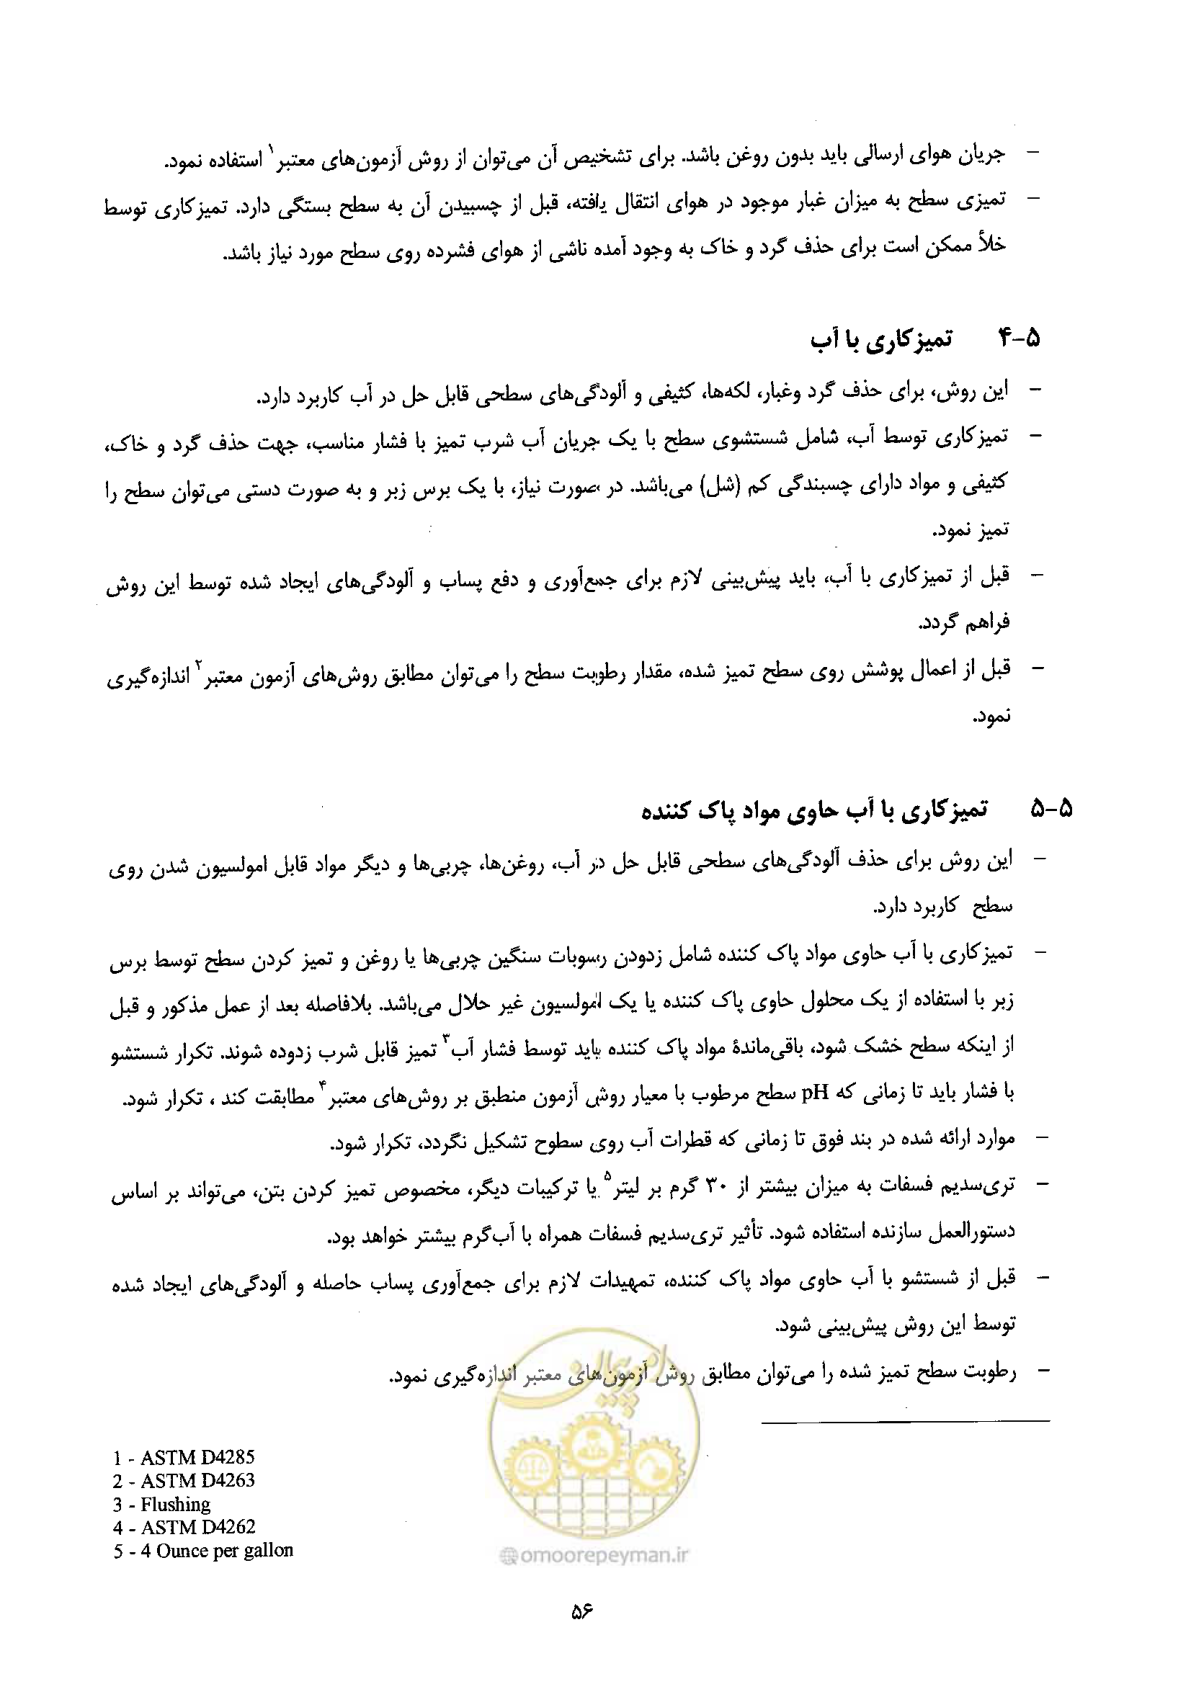 – جریان هوای ارسالی باید بدون روغن باشد. برای تشخیص آن می‌توان از روش آزمون‌های معتبر۱ استفاده نمود.
– تمیزی سطح به میزان غبار موجود در هوای انتقال یافته، قبل از چسبیدن آن به سطح بستگی دارد. تمیزکاری توسط
خلأ ممکن است برای حذف گرد و خاک به وجود آمده ناشی از هوای فشرده روی سطح مورد نیاز باشد.
۴-۵ تمیزکاری با آب
– این روش، برای حذف گرد وغبار، لکه‌ها، کثیفی و آلودگی‌های سطحی قابل حل در آب کاربرد دارد.
– تمیزکاری توسط آب، شامل شستشوی سطح با یک جریان آب شرب تمیز با فشار مناسب، جهت حذف گرد و خاک،
کثیفی و مواد دارای چسبندگی کم (شل) می‌باشد. در صورت نیاز، با یک برس زبر و به صورت دستی می‌توان سطح را
تمیز نمود.
– قبل از تمیزکاری با آب، باید پیش‌بینی لازم برای جمع‌آوری و دفع پساب و آلودگی‌های ایجاد شده توسط این روش
فراهم گردد.
– قبل از اعمال پوشش روی سطح تمیز شده، مقدار رطوبت سطح را می‌توان مطابق روش‌های آزمون معتبر۲ اندازه‌گیری
نمود.
۵-۵ تمیزکاری با آب حاوی مواد پاک کننده
– این روش برای حذف آلودگی‌های سطحی قابل حل در آب، روغن‌ها، چربی‌ها و دیگر مواد قابل امولسیون شدن روی
سطح کاربرد دارد.
– تمیزکاری با آب حاوی مواد پاک کننده شامل زدودن رسوبات سنگین چربی‌ها یا روغن و تمیز کردن سطح توسط برس
زبر با استفاده از یک محلول حاوی پاک کننده یا یک امولسیون غیر حلال می‌باشد. بلافاصله بعد از عمل مذکور و قبل
از اینکه سطح خشک شود، باقی‌ماندهٔ مواد پاک کننده باید توسط فشار آب۳ تمیز قابل شرب زدوده شوند. تکرار شستشو
با فشار باید تا زمانی که pH سطح مرطوب با معیار روش آزمون منطبق بر روش‌های معتبر۴ مطابقت کند ، تکرار شود.
– موارد ارائه شده در بند فوق تا زمانی که قطرات آب روی سطوح تشکیل نگردد، تکرار شود.
– تری‌سدیم فسفات به میزان بیشتر از ۳۰ گرم بر لیتر۵ یا ترکیبات دیگر، مخصوص تمیز کردن بتن، می‌تواند بر اساس
دستورالعمل سازنده استفاده شود. تأثیر تری‌سدیم فسفات همراه با آب‌گرم بیشتر خواهد بود.
– قبل از شستشو با آب حاوی مواد پاک کننده، تمهیدات لازم برای جمع‌آوری پساب حاصله و آلودگی‌های ایجاد شده
توسط این روش پیش‌بینی شود.
– رطوبت سطح تمیز شده را می‌توان مطابق روش آزمون‌های معتبر اندازه‌گیری نمود.
امور پیمان
1 - ASTM D4285
2 - ASTM D4263
3 - Flushing
4 - ASTM D4262
5 - 4 Ounce per gallon
@omoorepeyman.ir
۵۶